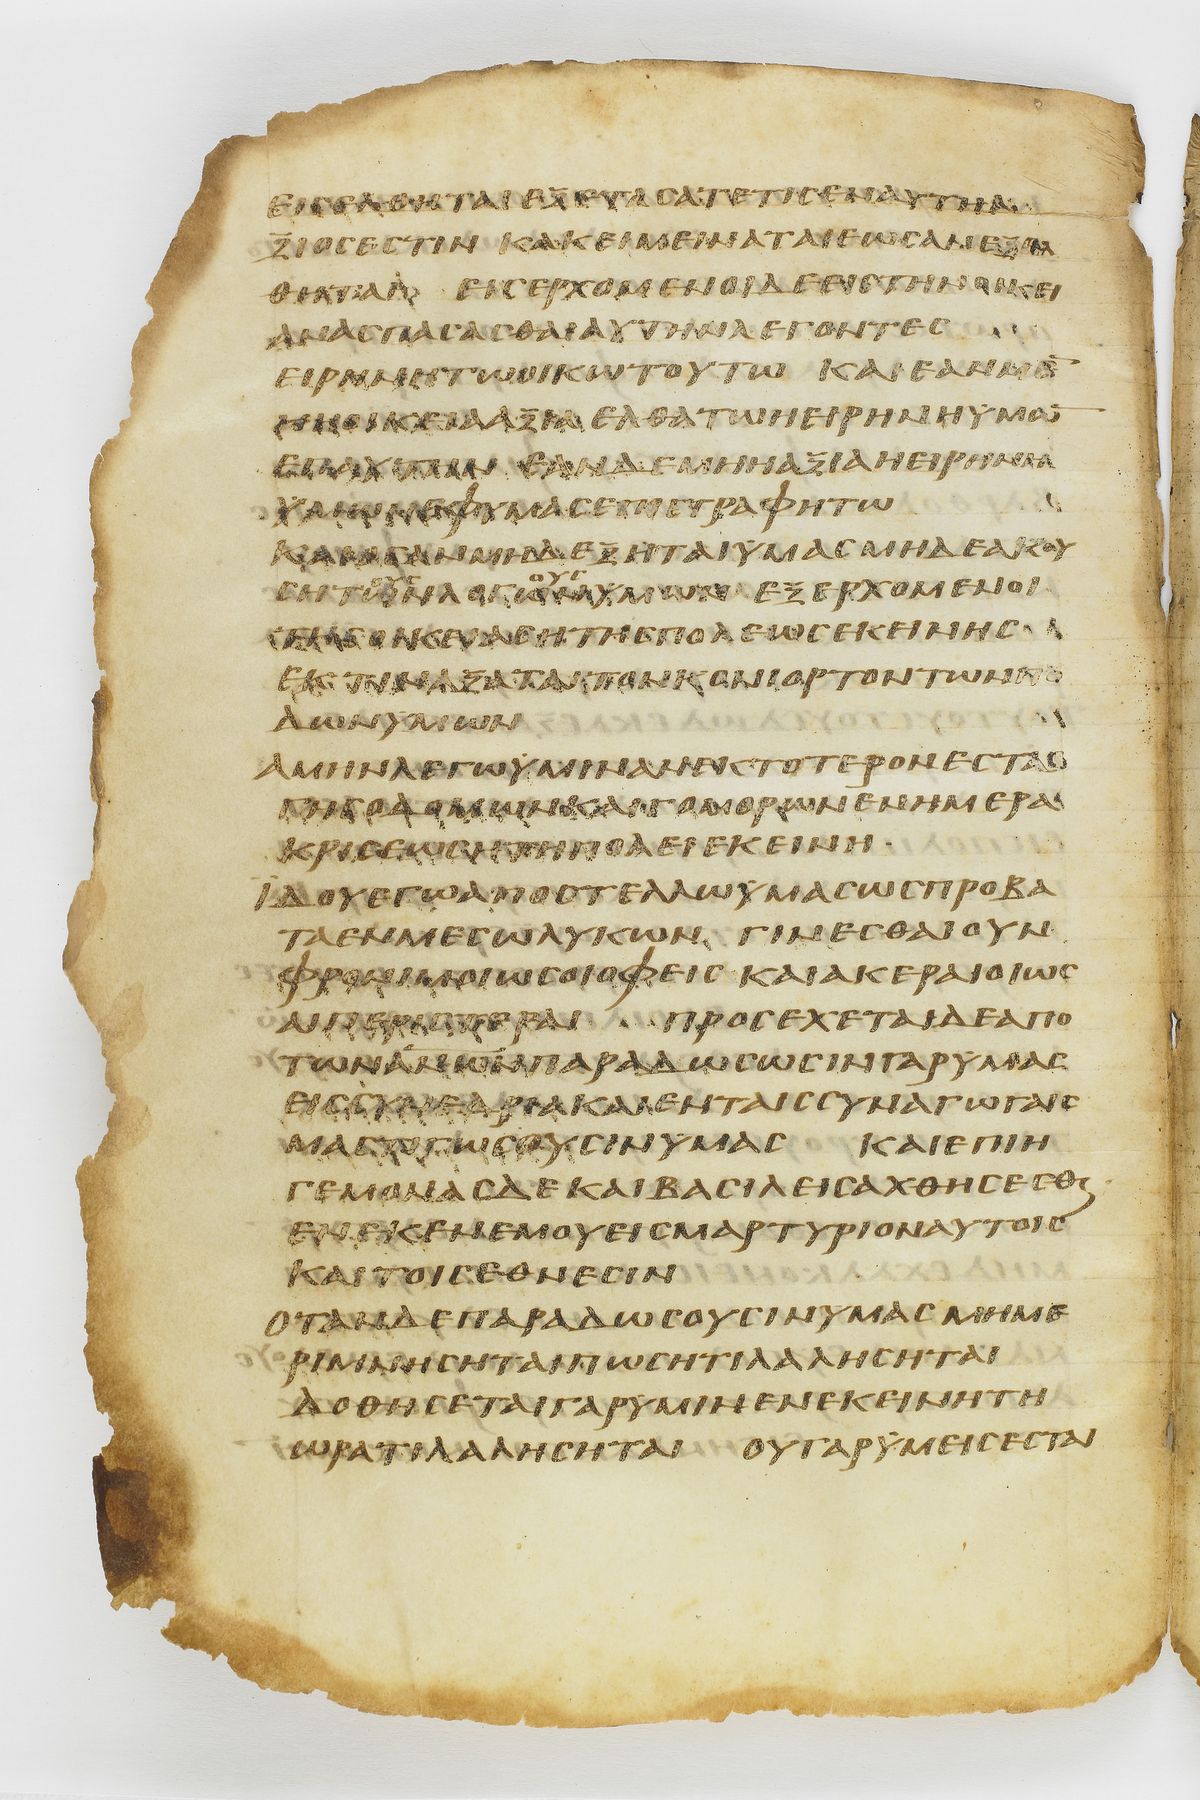 ΕΙΣΕΛΘΗΤΑΙ ΕΞΕΤΑΣΑΤΕΤΙΣΕΝΑΥΤΗΑ
ΞΙΟΣΕΣΤΙΝ ΚΑΚΕΙΜΕΙΝΑΤΑΙΕΩΣΑΝΕΞΕΛ
ΘΗΤΑΙ ΕΙΣΕΡΧΟΜΕΝΟΙΔΕΕΙΣΤΗΝΟΙΚΕΙ
ΑΝΑΣΠΑΣΑΣΘΑΙΑΥΤΗΝΛΕΓΟΝΤΕΣ
ΕΙΡΗΝΗΤΩΟΙΚΩΤΟΥΤΩ ΚΑΙΕΑΝΜΕ̅
ΗΗΟΙΚΕΙΑΑΞΙΑ ΕΛΘΑΤΩΗΕΙΡΗΝΗΫΜΩ̅
ΕΠΑΥΤΗΝ ΕΑΝΔΕΜΗΗΑΞΙΑΗΕΙΡΗΝΗ
ΫΜΩΝΕΦΫΜΑΣΕΠΙΣΤΡΑΦΗΤΩ
ΚΑΙΟΣΑΝΜΗΔΕΞΗΤΑΙΫΜΑΣΜΗΔΕΑΚΟΥ
ΣΗΤΟΥΣΛΟΓΟΥΣΫΜΩΝ ΕΞΕΡΧΟΜΕΝΟΙ
ΤΗΣΠΟΛΕΩΣΕΚΕΙΝΗΣ
ΕΚΤΙΝΑΞΑΤΑΙΤΟΝΚΟΝΙΟΡΤΟΝΤΩΝΠΟ
ΔΩΝΫΜΩΝ
ΑΜΗΝΛΕΓΩΫΜΙΝΑΝΕΚΤΟΤΕΡΟΝΕΣΤΑΙ
ΓΗΣΟΔΟΜΩΝΚΑΙΓΟΜΟΡΩΝΕΝΗΜΕΡΑ
ΚΡΙΣΕΩΣΗΤΗΠΟΛΕΙΕΚΕΙΝΗ
ΪΔΟΥΕΓΩΑΠΟΣΤΕΛΛΩΫΜΑΣΩΣΠΡΟΒΑ
ΤΑΕΝΜΕΣΩΛΥΚΩΝ ΓΙΝΕΣΘΑΙΟΥΝ
ΦΡΟΝΙΜΟΙΩΣΟΙΟΦΕΙΣ ΚΑΙΑΚΕΡΑΙΟΙΩΣ
ΑΙΠΕΡΙΣΤΕΡΑΙ ΠΡΟΣΕΧΕΤΑΙΔΕΑΠΟ
ΤΩΝΑ̅Ν̅Ω̅Ν̅ΠΑΡΑΔΩΣΩΣΙΝΓΑΡΫΜΑΣ
ΕΙΣΣΥΝΕΔΡΙΑΚΑΙΕΝΤΑΙΣΣΥΝΑΓΩΓΑΙΣ
ΜΑΣΤΙΓΩΣΟΥΣΙΝΫΜΑΣ ΚΑΙΕΠΙΗ
ΓΕΜΟΝΑΣΔΕΚΑΙΒΑΣΙΛΕΙΣΑΧΘΗΣΕΣΘΕ
ΕΝΕΚΕΝΕΜΟΥΕΙΣΜΑΡΤΥΡΙΟΝΑΥΤΟΙΣ
ΚΑΙΤΟΙΣΕΘΝΕΣΙΝ
ΟΤΑΝΔΕΠΑΡΑΔΩΣΟΥΣΙΝΥΜΑΣΜΗΜΕ
ΡΙΜΝΗΣΗΤΑΙΠΩΣΗΤΙΛΑΛΗΣΗΤΑΙ
ΔΟΘΗΣΕΤΑΙΓΑΡΫΜΙΝΕΝΕΚΕΙΝΗΤΗ
ΩΡΑΤΙΛΑΛΗΣΗΤΑΙ ΟΥΓΑΡΫΜΕΙΣΕΣΤΑΙ